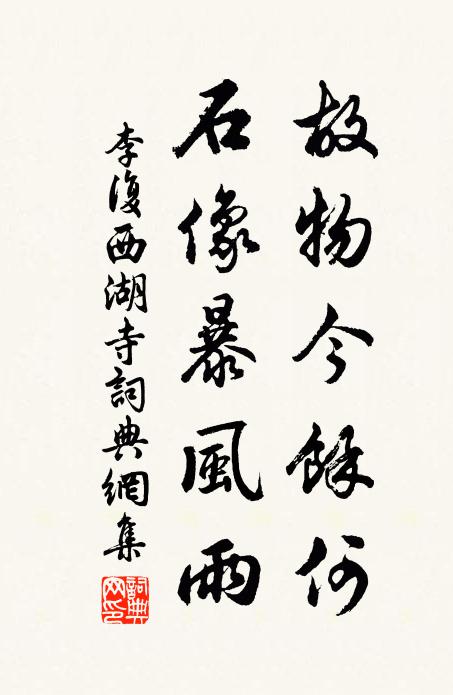 故物今餘何
石像暴風雨
李復西湖寺詞典網集
詞典網印